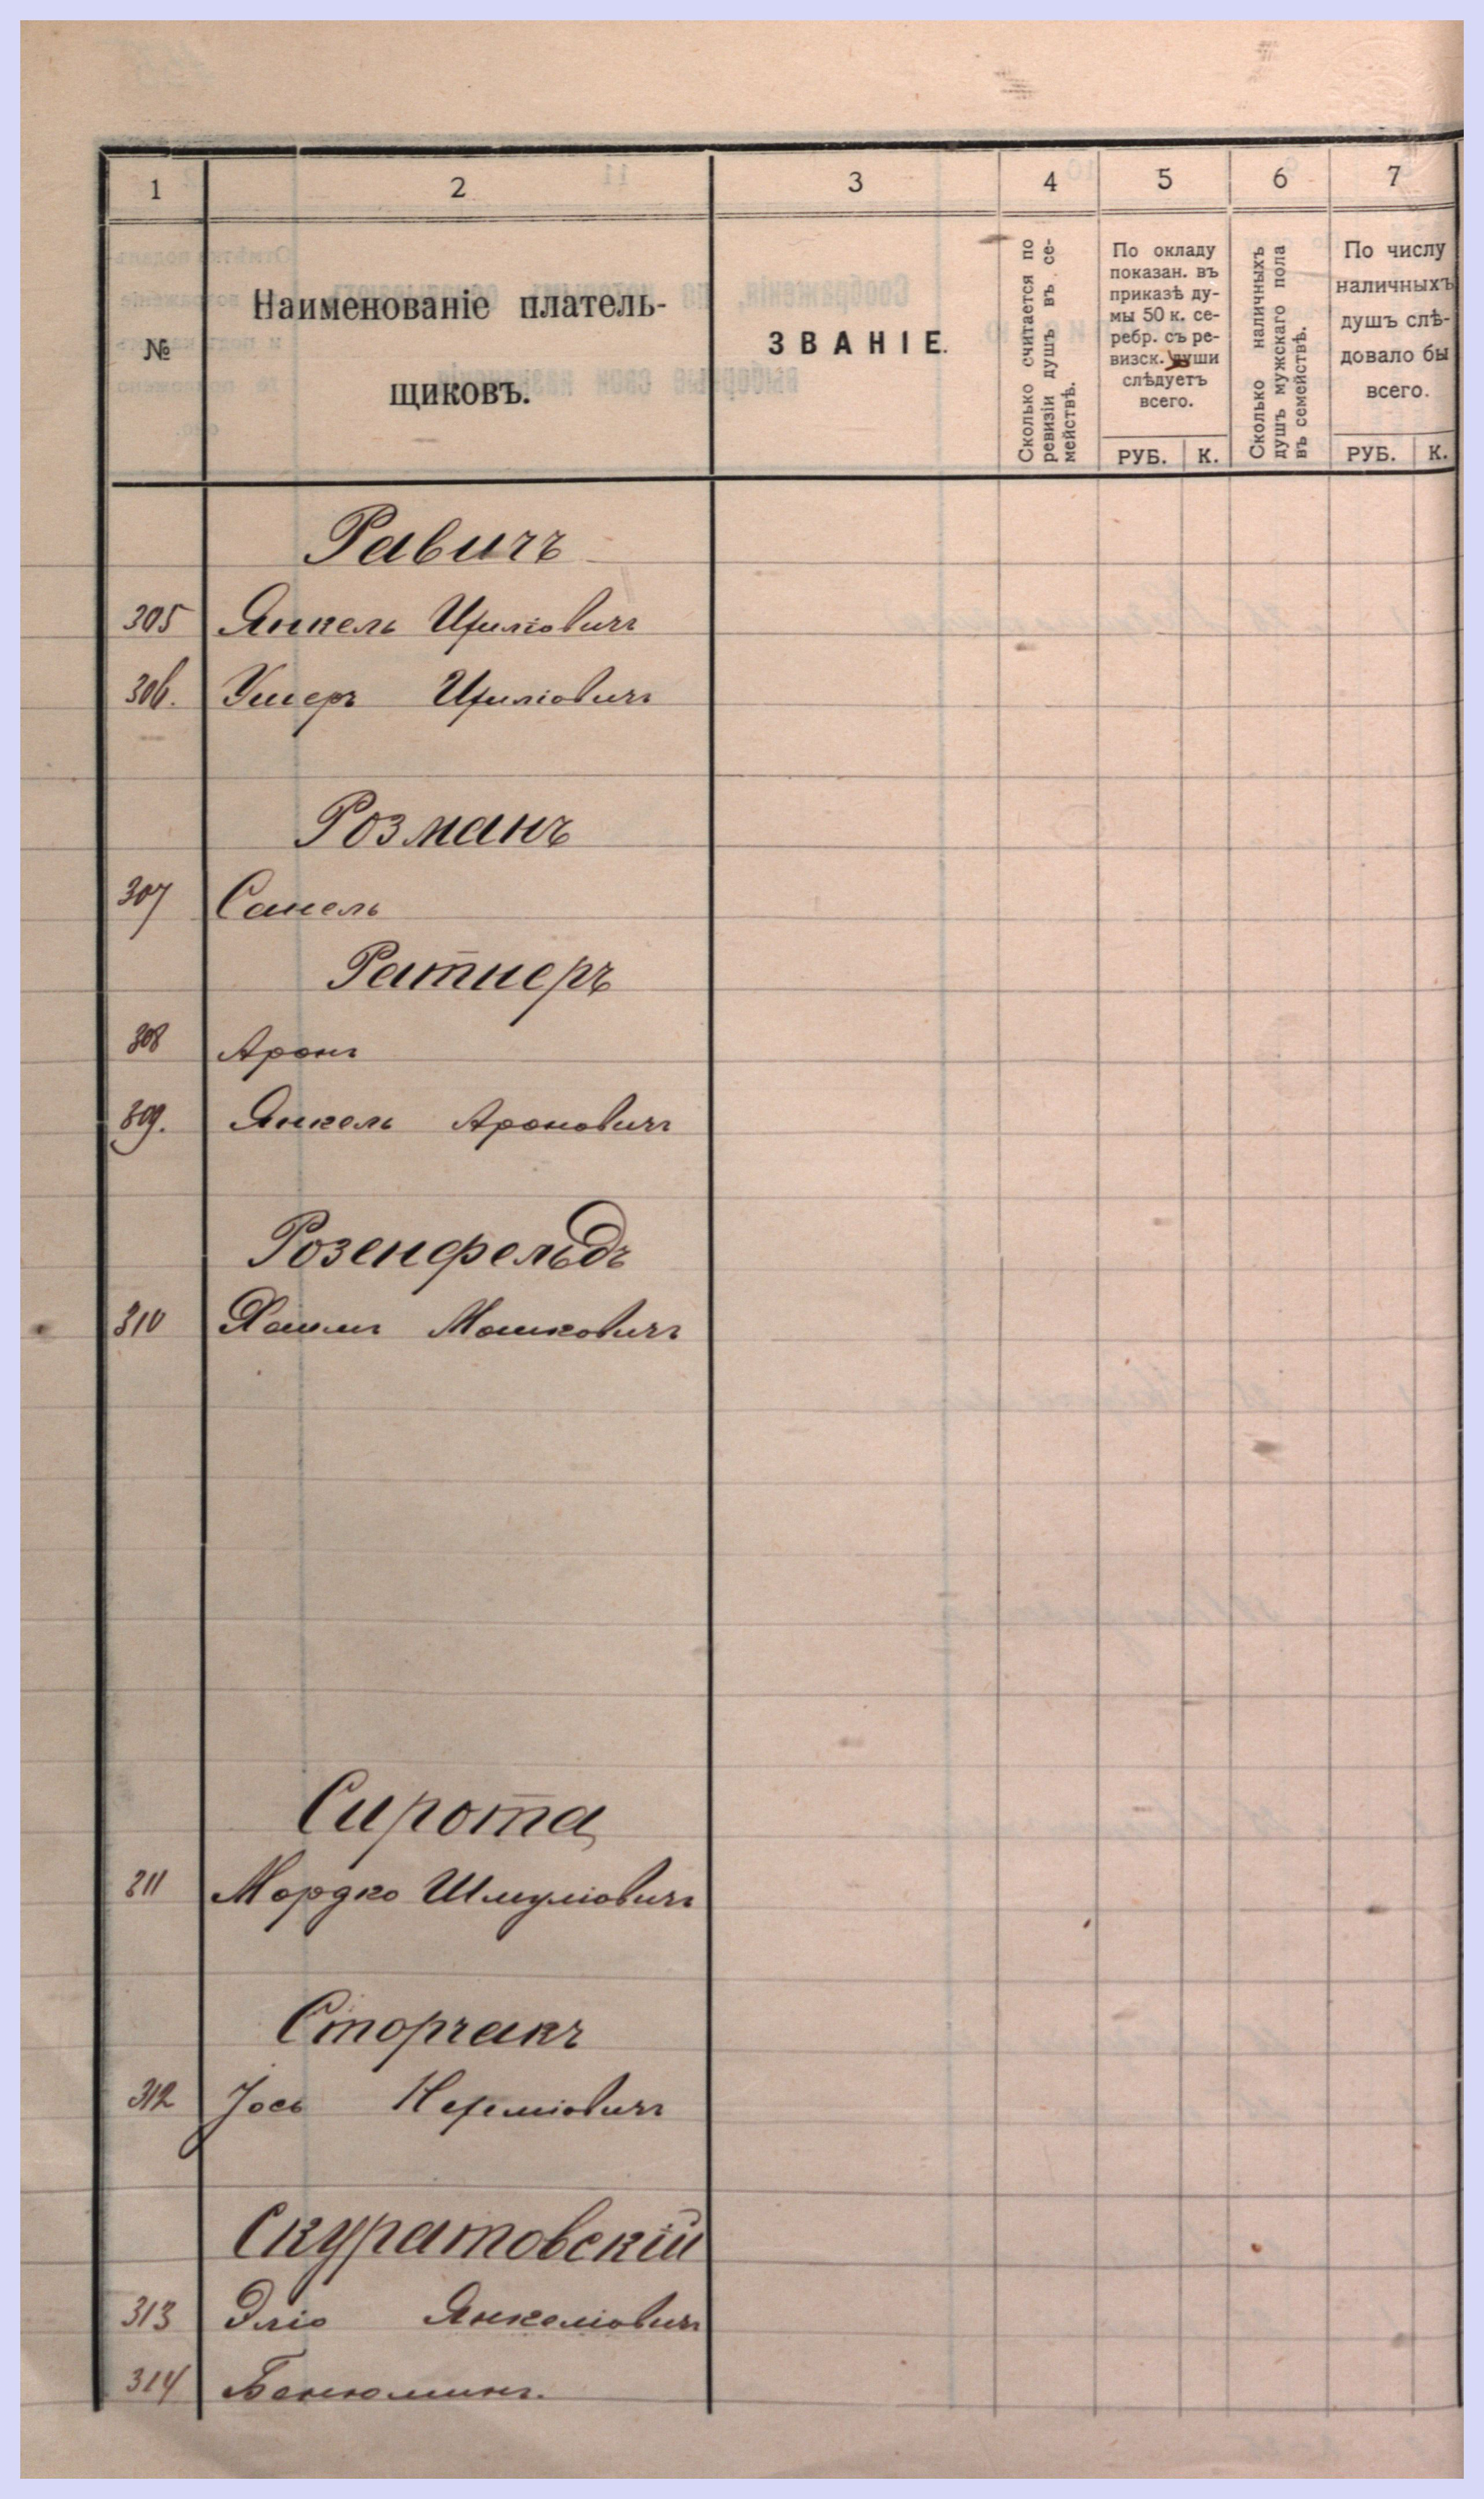 1 2 3 4 5 6 7
№
Наименованіе платель-
щиковъ.
ЗВАНІЕ.
Сколько считается по
ревизіи душъ въ се-
мействѣ.
По окладу
показан. въ
приказѣ ду-
мы 50 к. се-
ребр. съ ре-
визск. души
слѣдуетъ
всего.
РУБ. К.
Сколько наличныхъ
душъ мужскаго пола
въ семействѣ.
По числу
наличныхъ
душъ слѣ-
довало бы
всего.
РУБ. К.
Равичъ
305 Янкель
306. Ушеръ
Розманъ
307 Санель
Ратнеръ
308 Аронъ
309. Янкель Ароновичъ
Розенфельдъ
310 Мошковичъ
Сирота
311 Мордко Шмуліовичъ
Сторчакъ
312 Іось
Скуратовскій
313 Эліо Янкеліовичъ
314 Бенюминъ.